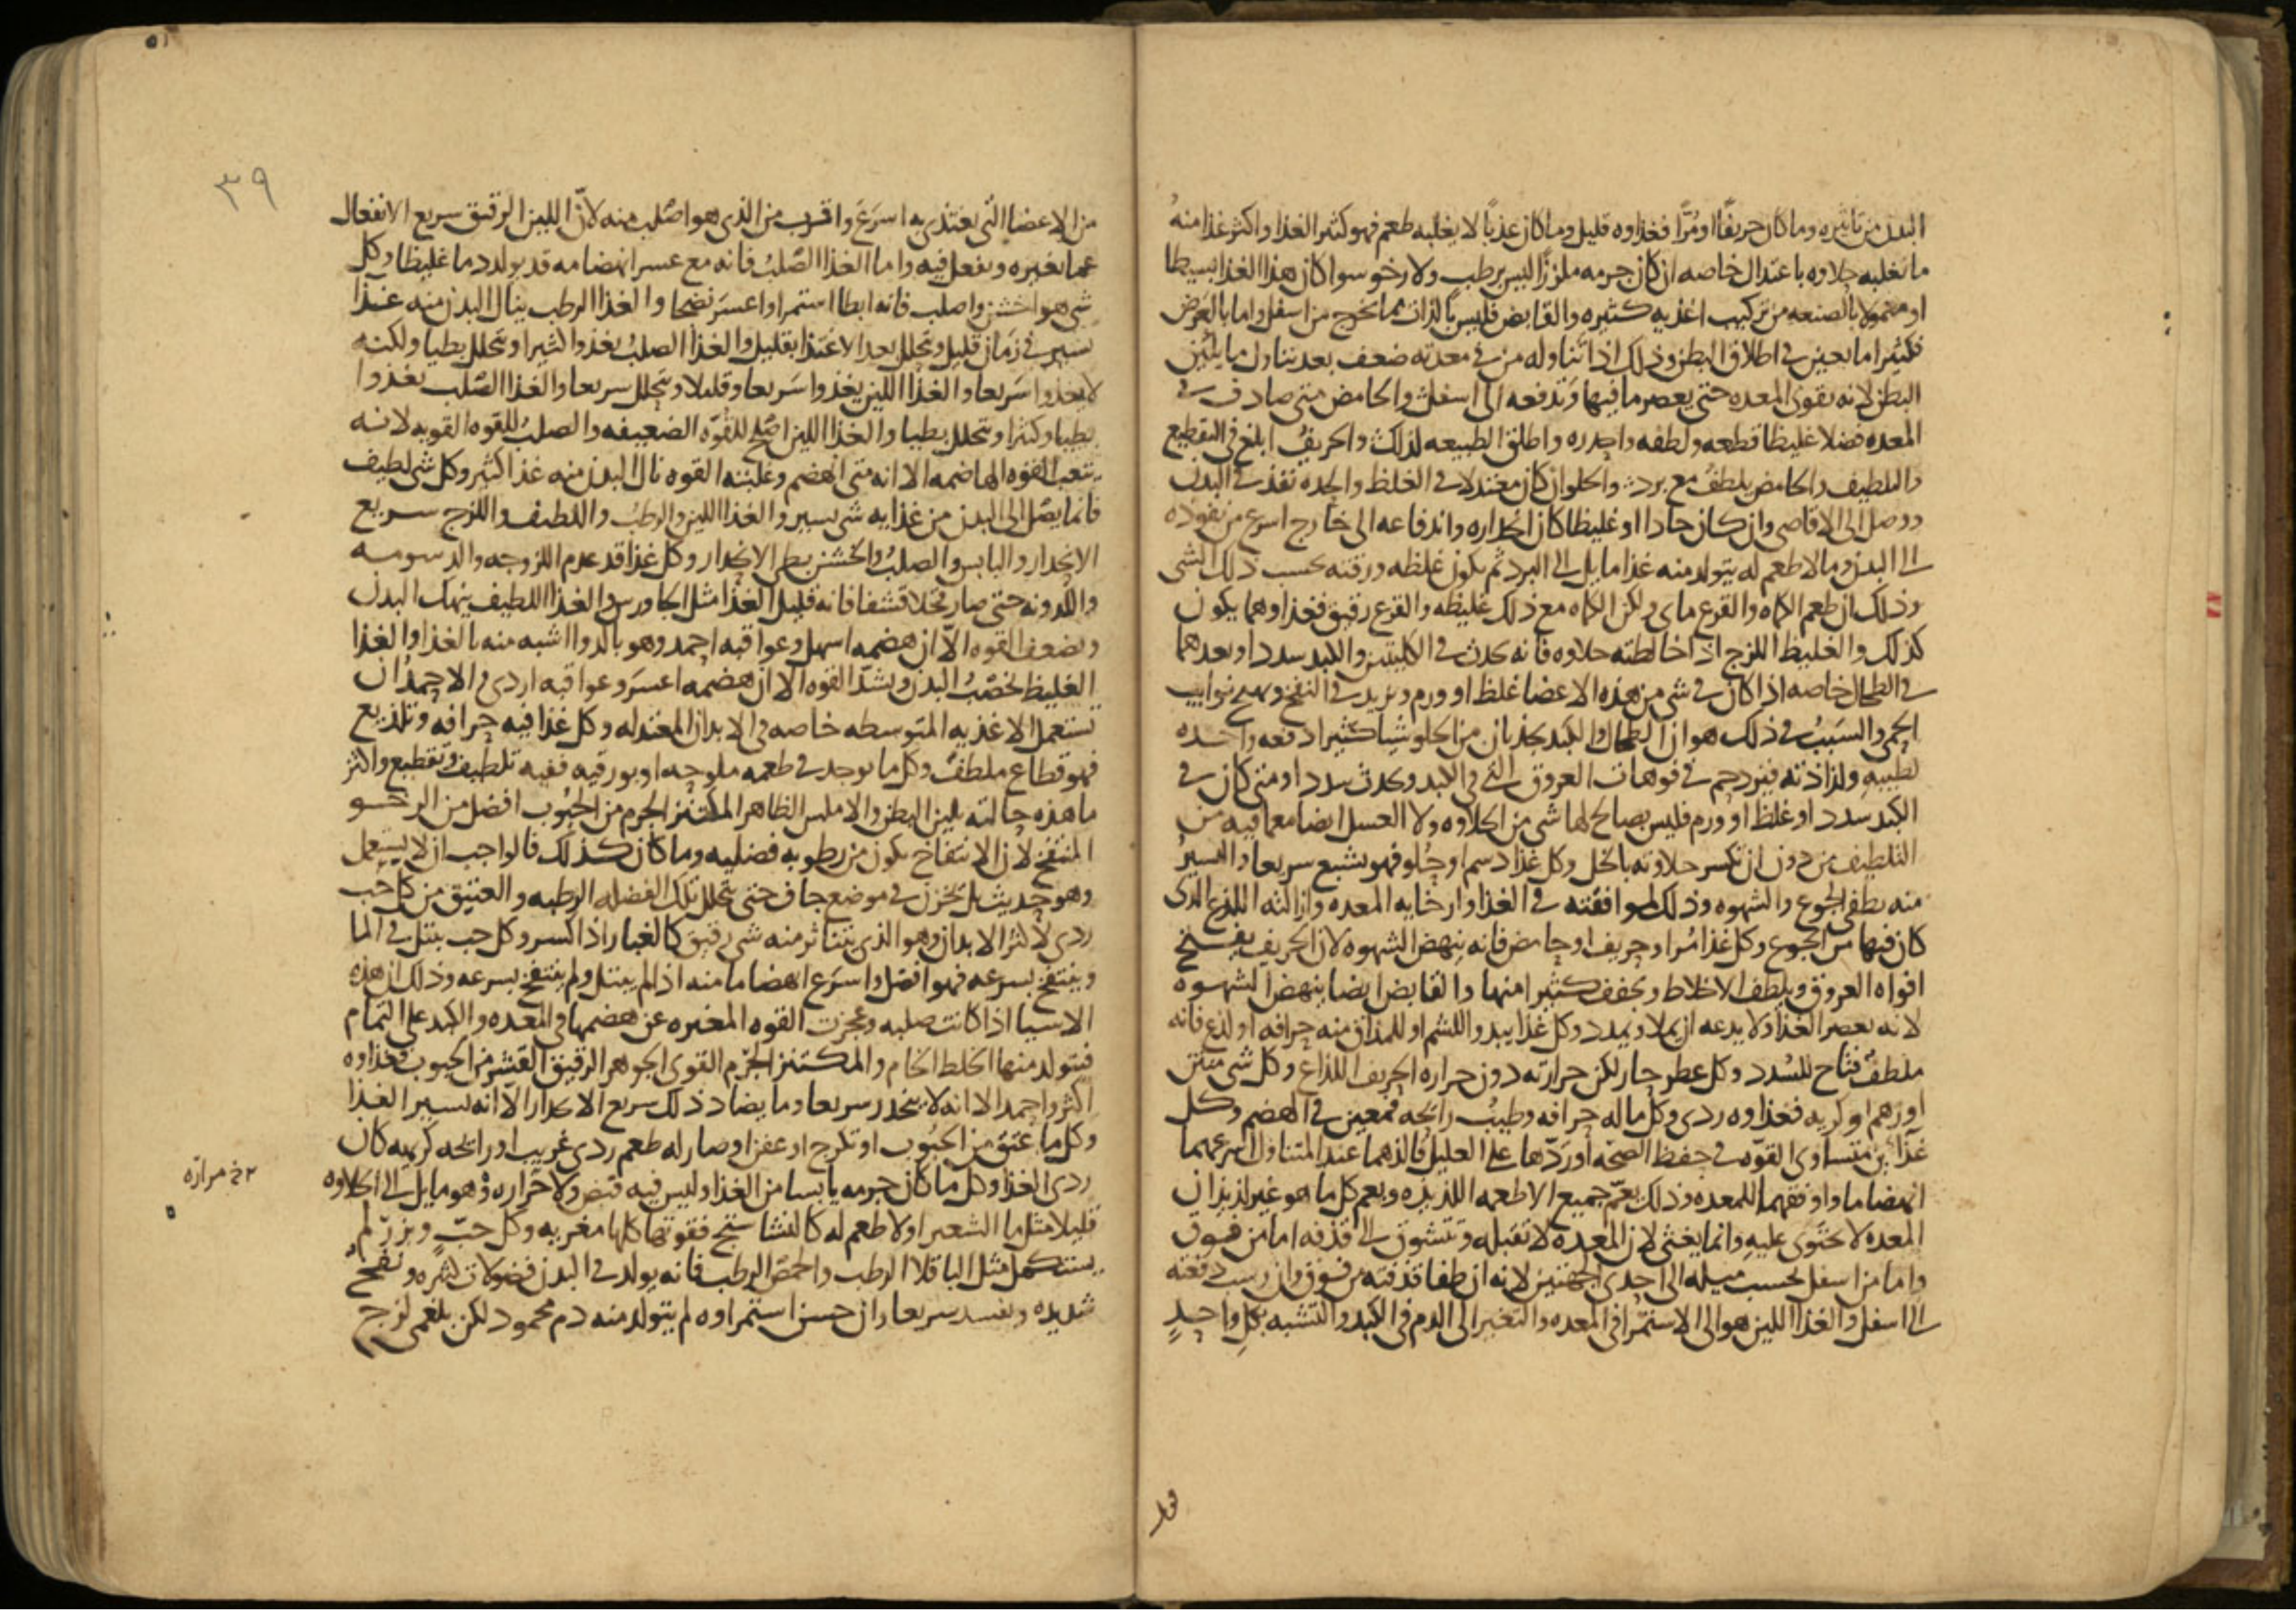 البدن من تاثيره وما كان حريفًا او مُرًّا فغذاوه قليل وما كان عذبًا لا يغلبه طعم فهو كثير الغذا واكثر غذا منه
ما تغلبه حلاوه باعتدال خاصه ان كان جرمه ملززًا ليس برطب ولا رخو سوا كان هذا الغذا بسيطا
او معمولا بالصنعه من تركيب اغذيه كثيره والقابض فليس بالذات مما يخرج من اسفل واما بالعرض
فكثيرا ما يعين في اطلاق البطن وذلك اذا تناوله من في معدته ضعف بعد تناول ما يلين
البطن لانه يقوى المعده حتى يعصر ما فيها وتدفعه الى اسفل والحامض متى صادف في
المعده فضلا غليظا قطعه ولطفه واحدره واطلق الطبيعه لذلك والحريف ابلغ في التقطيع
والتلطيف والحامض يلطف مع برد والحلو ان كان معتدلا في الغلظ والحده نفذ في البدن
ووصل الى الاقاصى وان كان حادا او غليظا كان انحداره واندفاعه الى خارج اسرع من نفوذه
الى البدن وما لا طعم له يتولد منه غذا مايل الى البرد ثم يكون غلظه ورقته بحسب ذلك الشى
وذلك ان طعم الكماه والقرع ماى ولكن الكماه مع ذلك غليظه والقرع رقيق فغذاوهما يكون
كذلك والغليظ اللزج اذا خالطته حلاوه فانه يحدث في الكليتين والكبد سددا وبعدهما
في الطحال خاصه اذا كان في شى من هذه الاعضا غلظ او ورم ويزيد في النفخ ويهيج نوايب
الحمى والسبب في ذلك هو ان الطحال والكبد يجذبان من الحلو شيا كثيرا دفعه واحده
لطيبه ولذاذته فيزدحم في فوهات العروق التى في الكبد ويحدث سددا ومتى كان في
الكبد سدد او غلظ او ورم فليس بصالح لها شى من الحلاوه ولا العسل ايضا مع ما فيه من
التلطيف من دون ان تكسر حلاوته بالخل وكل غذا دسم او حلو فهو يشبع سريعا واليسير
منه يطفى الجوع والشهوه وذلك لموافقته في الغذا وارخايه المعده وازالته اللذع الذى
كان فيها من الجوع وكل غذا مُر او حريف او حامض فانه ينهض الشهوه لان الحريف يفتح
افواه العروق ويلطف الاخلاط ويجفف كثيرا منها والقابض ايضا ينهض الشهوه
لانه يعصر الغذا ولا يدعه ان يملا ويمدد وكل غذا يبدو للشم او للمذاق منه حرافه او لذع فانه
ملطف فتاح للسُدد وكل عطر حار لكن حرارته دون حراره الحريف اللذاع وكل شى منتن
او زهم او كريه فغذاوه ردى وكل ما له حرافه وطيب رايحه فمعين في الهضم وكل
غذاين متساوى القوّه في حفظ الصحّه او ردّها على العليل فالذهما عند المتناول اسرعهما
انهضاما واوفقهما للمعده وذلك يعمّ جميع الاطعمه اللذيذه ويعم كل ما هو غير لذيذ ان
المعده لا تحتوى عليه وانما يغثى لان المعده لا تقبله وتتشوق الى قذفه اما من فوق
واما من اسفل بحسب ميله الى احدى الجهتين لانه ان طفا قذفته من فوق وان رسب دفعته
الى اسفل والغذا اللين هو الى الاستمرا في المعده والتغير الى الدم في الكبد والتشبه بكل واحدٍ
٣٩
من الاعضا التى يغتذى به اسرع واقرب من الذى هو اصلب منه لانّ اللين الرقيق سريع الانفعال
عما يغيره ويفعل فيه واما الغذا الصلب فانه مع عسر انهضامه قد يولد دما غليظا وكل
شى هو اخشن واصلب فانه ابطا استمرا واعسر نضجا والغذا الرطب ينال البدن منه غذا
يسير في زمان قليل ويتحلل بعد الاغتذا بقليل والغذا الصلب يغذو اكثيرا ويتحلل بطيا ولكنه
لا يغذوا سريعا والغذا اللين يغذوا سريعا وقليلا ويتحلل سريعا والغذا الصلب يغذوا
بطيا وكثيرا ويتحلل بطيا والغذا اللين اصلح للقوه الضعيفه والصلب للقوه القويه لانه
يتعب القوه الهاضمه الا انه متى انهضم وغلبته القوه نال البدن منه غذا كثير وكل شى لطيف
فانما يصل الى البدن من غذايه شى يسير والغذا اللين والرطب واللطيف واللزج سريع
الانحدار واليابس والصلب والخشن بطى الانحدار وكل غذا قد عدم اللزوجه والدسومه
واللدونه حتى صار قحلا قشفا فانه قليل الغذا مثل الجاورس والغذا اللطيف ينهك البدن
ويضعف القوه الّا ان هضمه اسهل وعواقبه احمد وهو بالدوا اشبه منه بالغذا والغذا
الغليظ يخصب البدن ويشدّ القوه الا ان هضمه اعسر وعواقبه اردى والاحمد ان
تستعمل الاغذيه المتوسطه خاصه في الابدان المعتدله وكل غذا فيه حرافه وتلذيع
فهو قطاع ملطف وكل ما يوجد في طعمه ملوحه او بورقيه ففيه تلطيف وتقطيع واكثر
ما هذه حالته يلين البطن والاملس الظاهر المكتنز الجرم من الحبوب افضل من الرخو
المنتفخ لان الانتفاخ يكون من رطوبه فضليه وما كان كذلك فالواجب ان لا يستعمل
وهو حديث بل يخزن في موضع جاف حتى يتحلل تلك الفضله الرطبه والعتيق من كل حب
ردى لاكثر الابدان وهو الذى يتناثر منه شى رقيق كالغبار اذا كسر وكل حب يبتل في الما
وينتفخ بسرعه فهو افضل واسرع انهضاما منه اذا لم يبتل ولم ينتفخ بسرعه وذلك ان هذه
الاشيا اذا كانت صلبه وعجزت القوه المغيره عن هضمها في المعده والكبد على التمام
فيتولد منها الخلط الخام والمكتنز الجرم القوى الجوهر الرقيق القشر من الحبوب فغذاوه
اكثر واحمد الا انه لا ينحدر سريعا وما يضاد ذلك سريع الانحدار الّا انه يسير الغذا
وكل ما عتق من الحبوب او تكرج او عفن او صار له طعم ردى غريب او رايحه كريهه كان
ردى الغذا وكل ما كان جرمه يابسا من الغذا وليس فيه قبض ولا حراره وهو مايل الى الحلاوه
خ مراره
قليلا مثل ما الشعير او لا طعم له كالنشاستج فقوتها كلها مغريه وكل حبّ وبزر لم
يستكمل مثل الباقلا الرطب والحمص الرطب فانه يولد في البدن فضولات كثيره ونفخ
شديده ويفسد سريعا وان حسن استمراوه لم يتولد منه دم محمود لكن بلغمى لزج